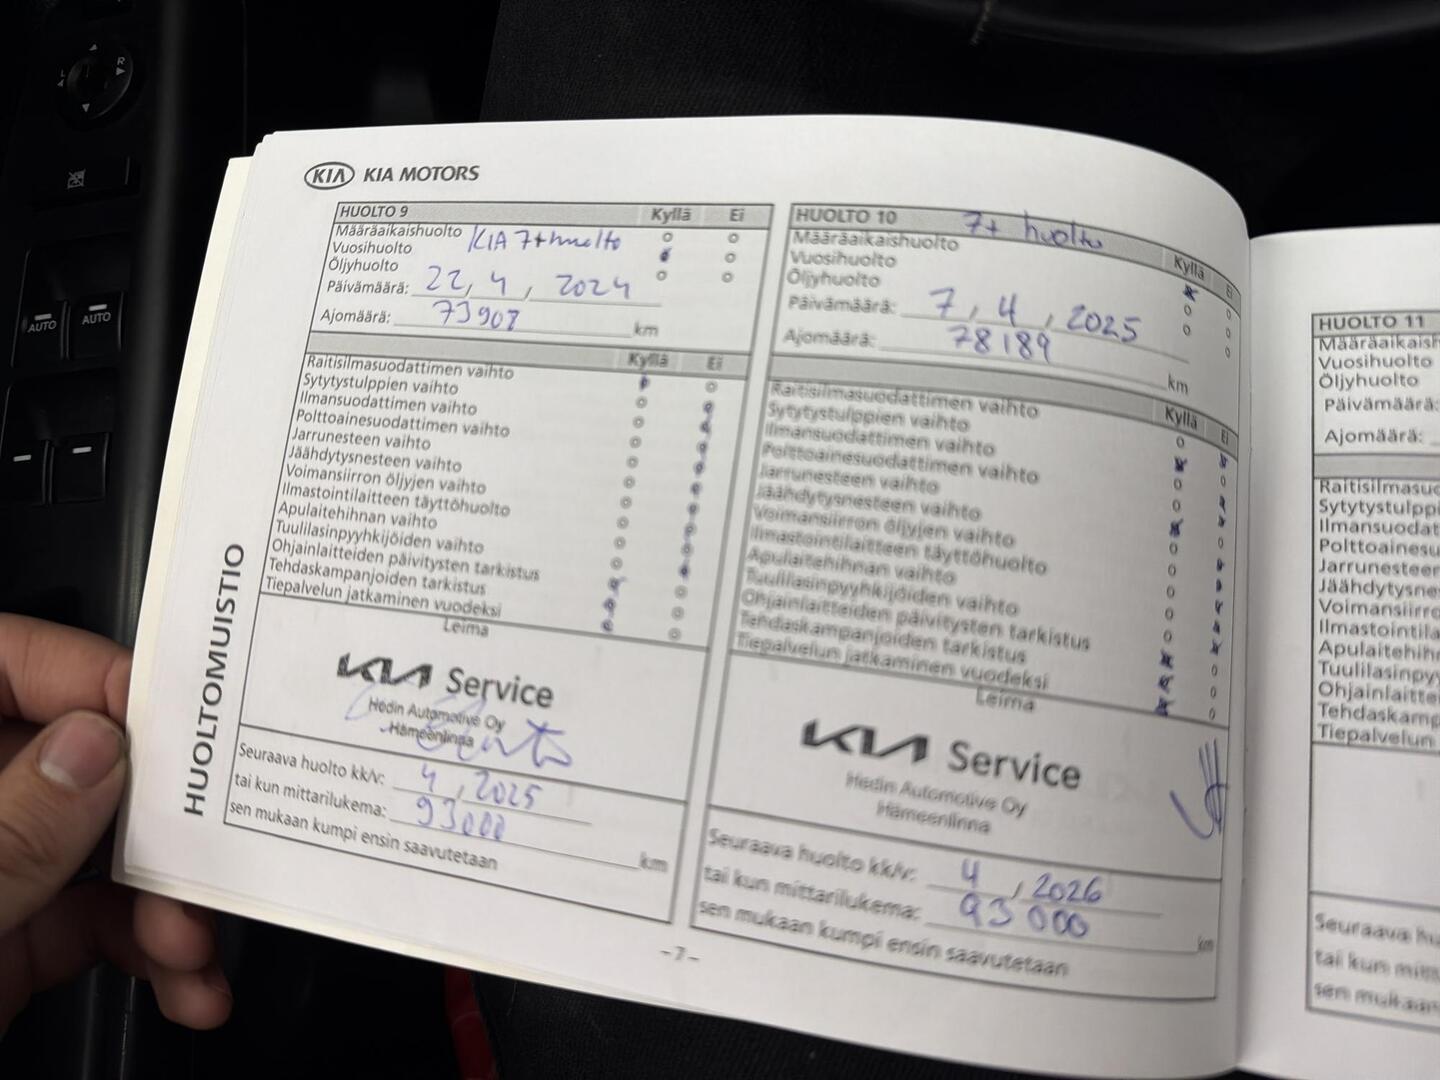 KIA KIA MOTORS
HUOLTO 9 Kyllä Ei
Määräaikaishuolto KIA 7+ huolto
Vuosihuolto
Öljyhuolto
Päivämäärä: 22, 4, 2024
Ajomäärä: 73907 km
Kyllä Ei
Raitisilmasuodattimen vaihto
Sytytystulppien vaihto
Ilmansuodattimen vaihto
Polttoainesuodattimen vaihto
Jarrunesteen vaihto
Jäähdytysnesteen vaihto
Voimansiirron öljyjen vaihto
Ilmastointilaitteen täyttöhuolto
Apulaitehihnan vaihto
Tuulilasinpyyhkijöiden vaihto
Ohjainlaitteiden päivitysten tarkistus
Tehdaskampanjoiden tarkistus
Tiepalvelun jatkaminen vuodeksi
Leima
KIA Service
Hedin Automotive Oy
Hämeenlinna
Seuraava huolto kk/v: 4, 2025
tai kun mittarilukema: 93000 km
sen mukaan kumpi ensin saavutetaan
HUOLTO 10 7+ huolto
Kyllä Ei
Määräaikaishuolto
Vuosihuolto
Öljyhuolto
Päivämäärä: 7, 4, 2025
Ajomäärä: 78189 km
Kyllä Ei
Raitisilmasuodattimen vaihto
Sytytystulppien vaihto
Ilmansuodattimen vaihto
Polttoainesuodattimen vaihto
Jarrunesteen vaihto
Jäähdytysnesteen vaihto
Voimansiirron öljyjen vaihto
Ilmastointilaitteen täyttöhuolto
Apulaitehihnan vaihto
Tuulilasinpyyhkijöiden vaihto
Ohjainlaitteiden päivitysten tarkistus
Tehdaskampanjoiden tarkistus
Tiepalvelun jatkaminen vuodeksi
Leima
KIA Service
Hedin Automotive Oy
Hämeenlinna
Seuraava huolto kk/v: 4, 2026
tai kun mittarilukema: 93000 km
sen mukaan kumpi ensin saavutetaan
HUOLTOMUISTIO
-7-
HUOLTO 11
Määräaikaish
Vuosihuolto
Öljyhuolto
Päivämäärä:
Ajomäärä:
Raitisilmasuo
Sytytystulppi
Ilmansuodat
Polttoainesu
Jarrunesteen
Jäähdytysnes
Voimansiirro
Ilmastointila
Apulaitehihn
Tuulilasinpyy
Ohjainlaittei
Tehdaskamp
Tiepalvelun
Seuraava hu
tai kun mitt
sen mukaan
L R
AUTO AUTO